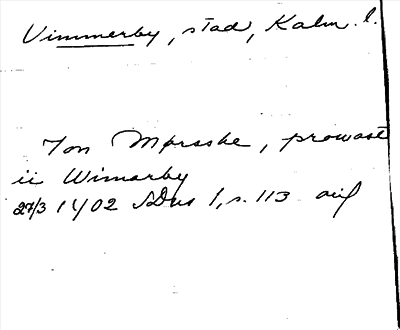 Vimmerby, stad, Kalm. l.
Jon Mprsske, prowast
ii Wimarby
27/3 1402 SDns 1, s. 113 avs